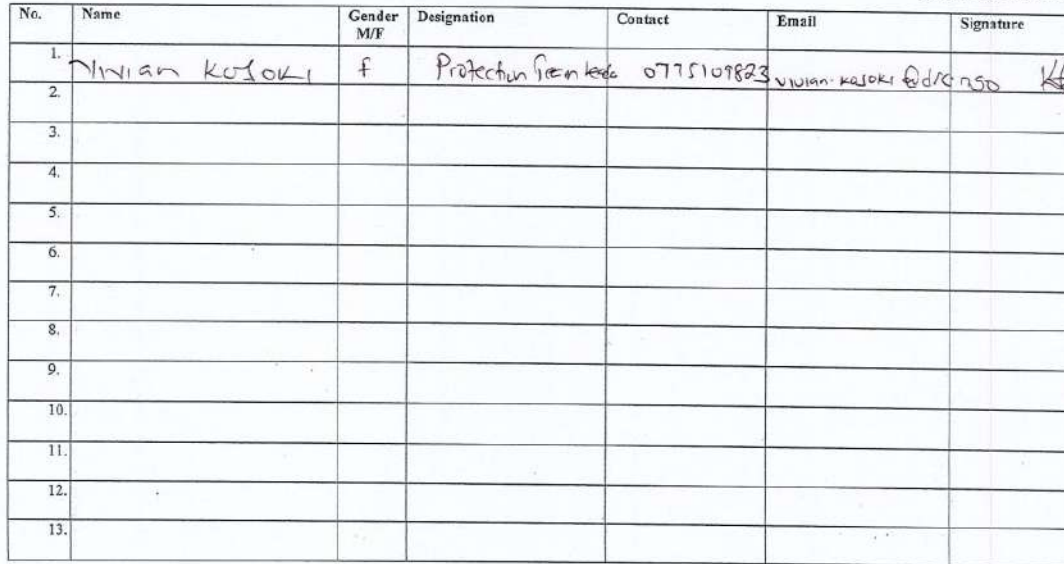 No. Name Gender M/F Designation Contact Email Signature
1. Vivian Kosoki f Protection Team leader 0775109823
2.
3.
4.
5.
6.
7.
8.
9.
10.
11.
12.
13.